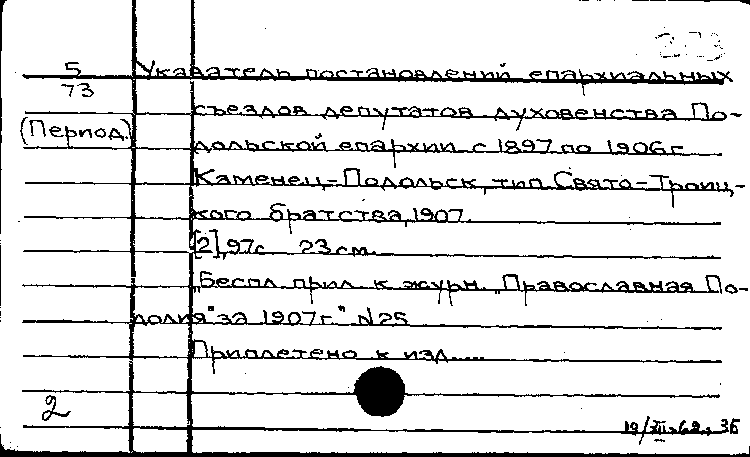 273
5 Указатель постановлений епархиальных
73 съездов депутатов духовенства По-
(Период.) дольской епархии с 1897 по 1906 г
Каменец-Подольск, тип Свято-Троиц-
кого братства, 1907.
[2], 97с 23 см.
"Беспл. прил. к журн. "Православная По-
долия" за 1907 г." N25
Приплетено к изд.....
2
19/XII-62. ЗБ